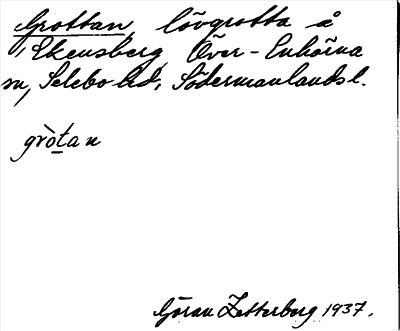 Grottan, lövgrotta å
Ekensberg, Över-Enhörna
sn, Selebo hd, Södermanlands l.
gròtan
Göran Zetterberg 1937.